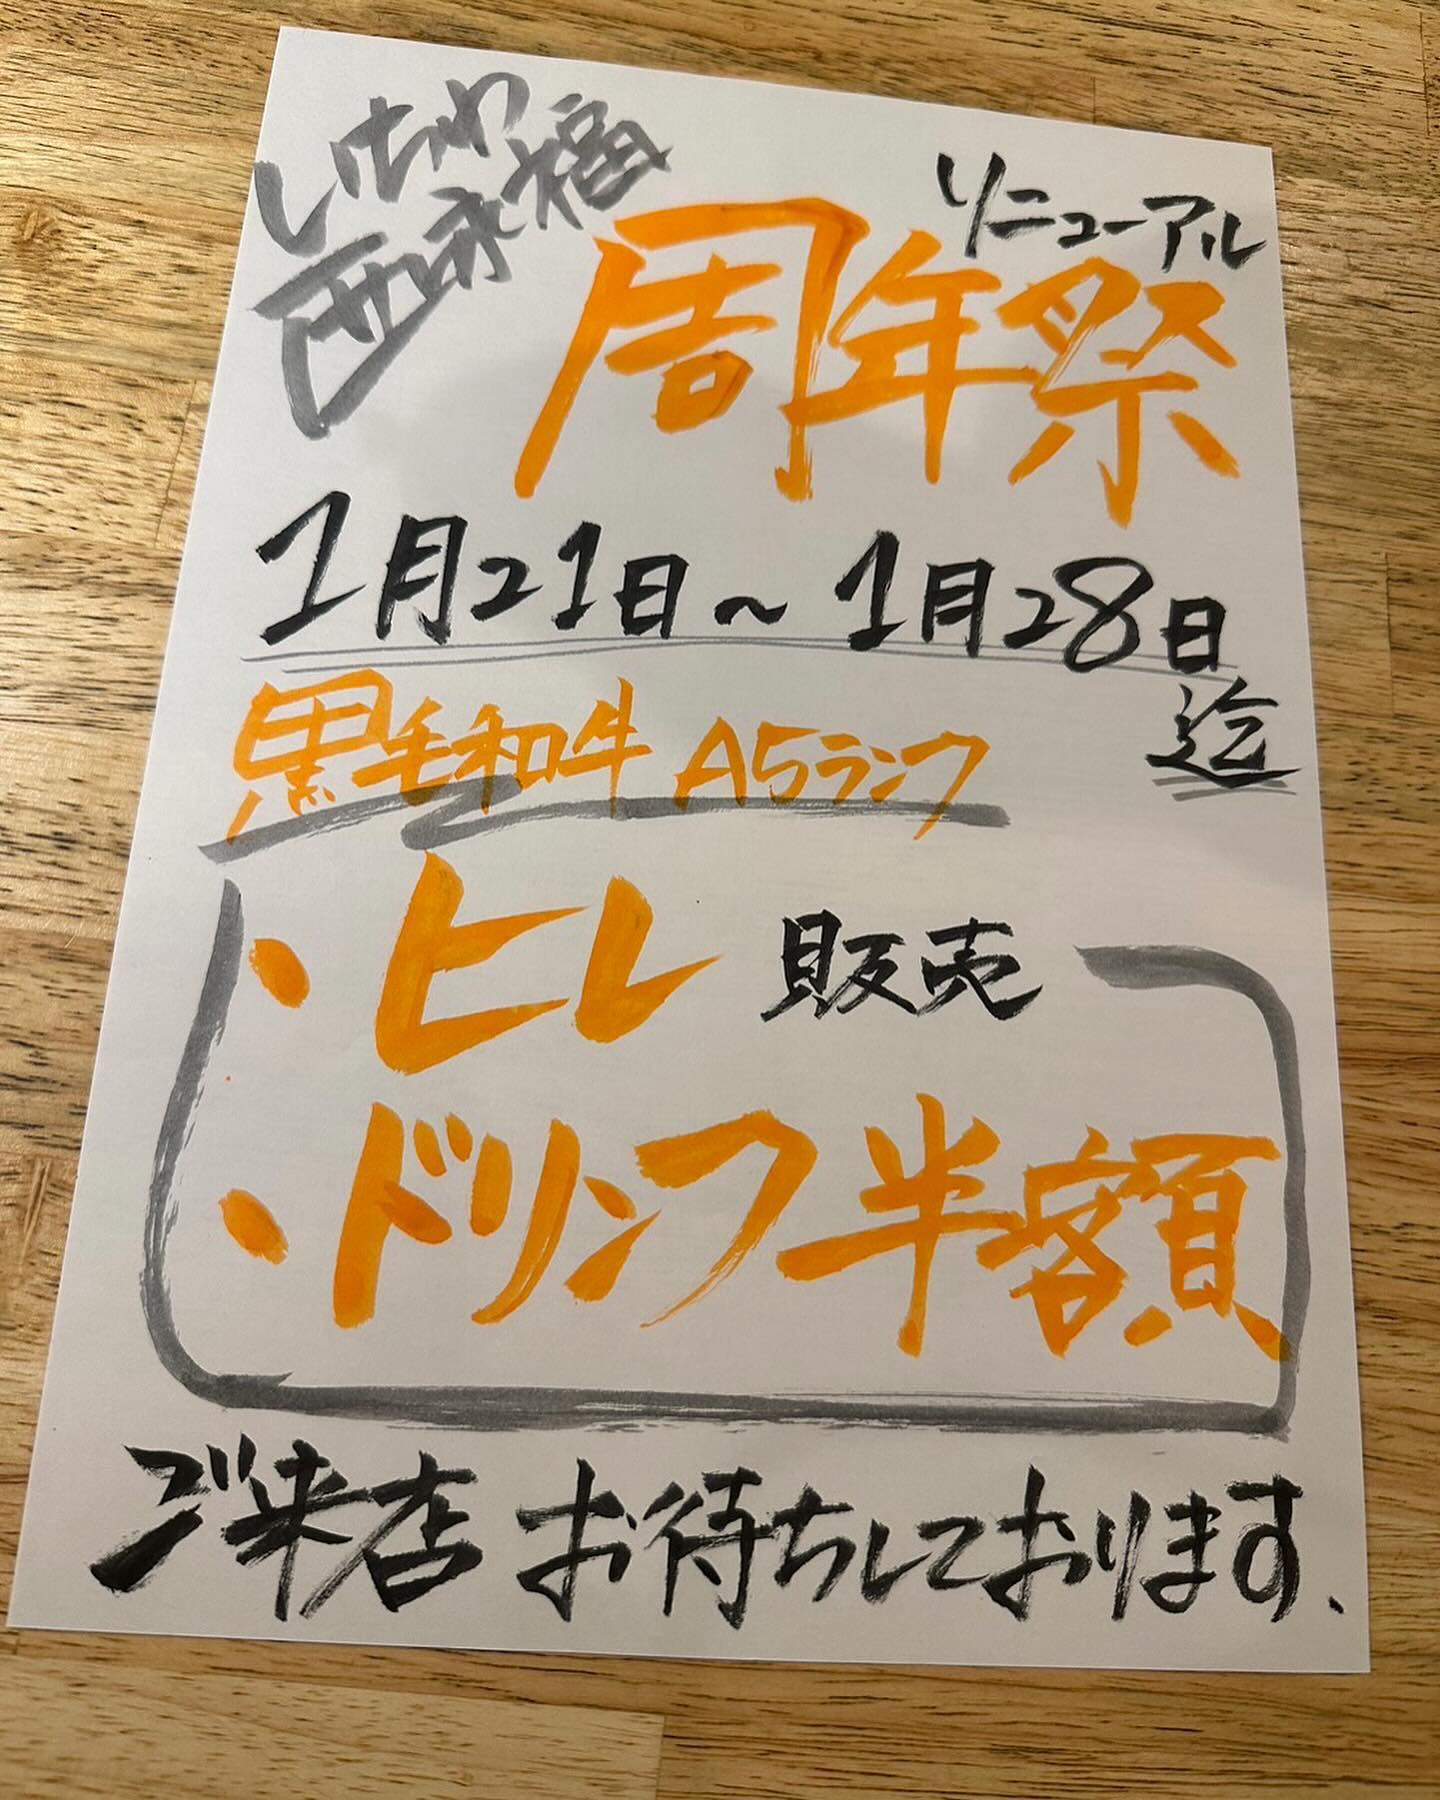 いちわ
西永福
リニューアル
周年祭
1月21日～1月28日
迄
黒毛和牛 A5ランク
・ヒレ 販売
・ドリンク半額
ご来店 お待ちしております.